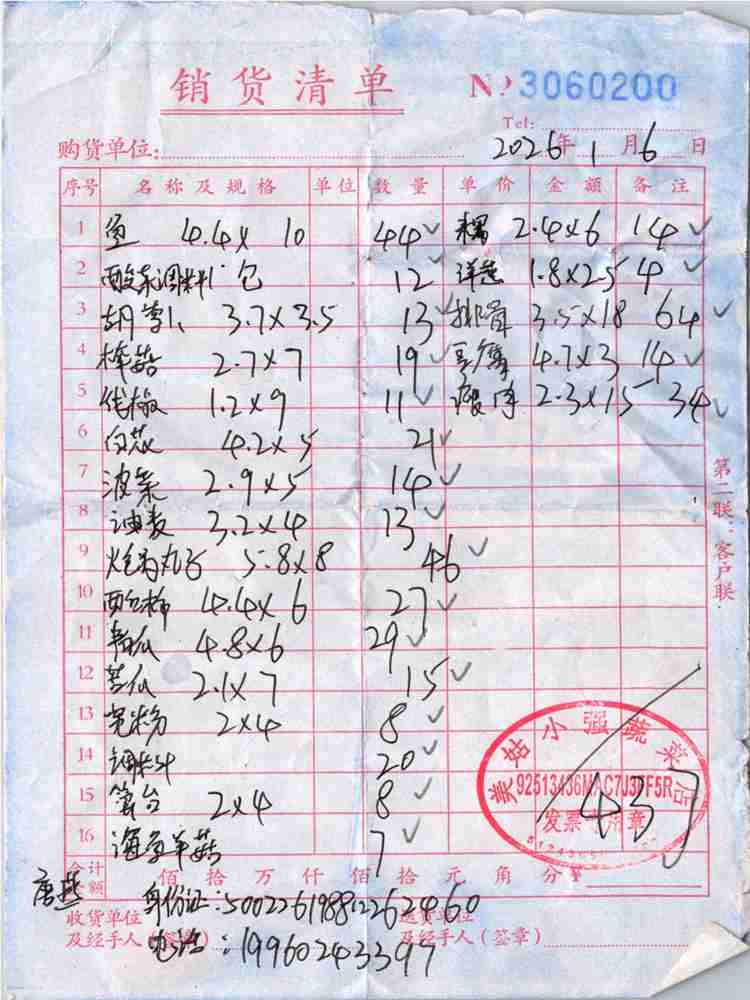 销货清单 № 3060200
Tel:
购货单位: 2026年1月6日
序号 名称及规格 单位 数量 单价 金额 备注
1 4.4x 10 44 2.4x6 14
2 酸菜调料1包 12 洋葱 1.8x2.5 4
3 胡萝卜 3.7x3.5 13 排骨 3.5x18 64
4 2.7x7 19 豆腐 4.7x3 14
5 线椒 1.2x9 11 2.3x15 34
6 白菜 4.2x5 21
7 波菜 2.9x5 14
8 油麦 3.2x4 13
9 丸子 5.8x8 46
10 4.4x6 27
11 青瓜 4.8x6 29
12 苦瓜 2.1x7 15
13 宽粉 2x4 8
14 调料 20
15 2x4 8
16 7
美姑小强蔬菜店
92513436MAC7J37F5R
发票专用章
437
合计金额 佰拾万仟佰拾元角分¥
唐燕 身份证:500226198812262460
收货单位及经手人(签章) 送货单位及经手人(签章)
电话:19960243397
第二联:客户联